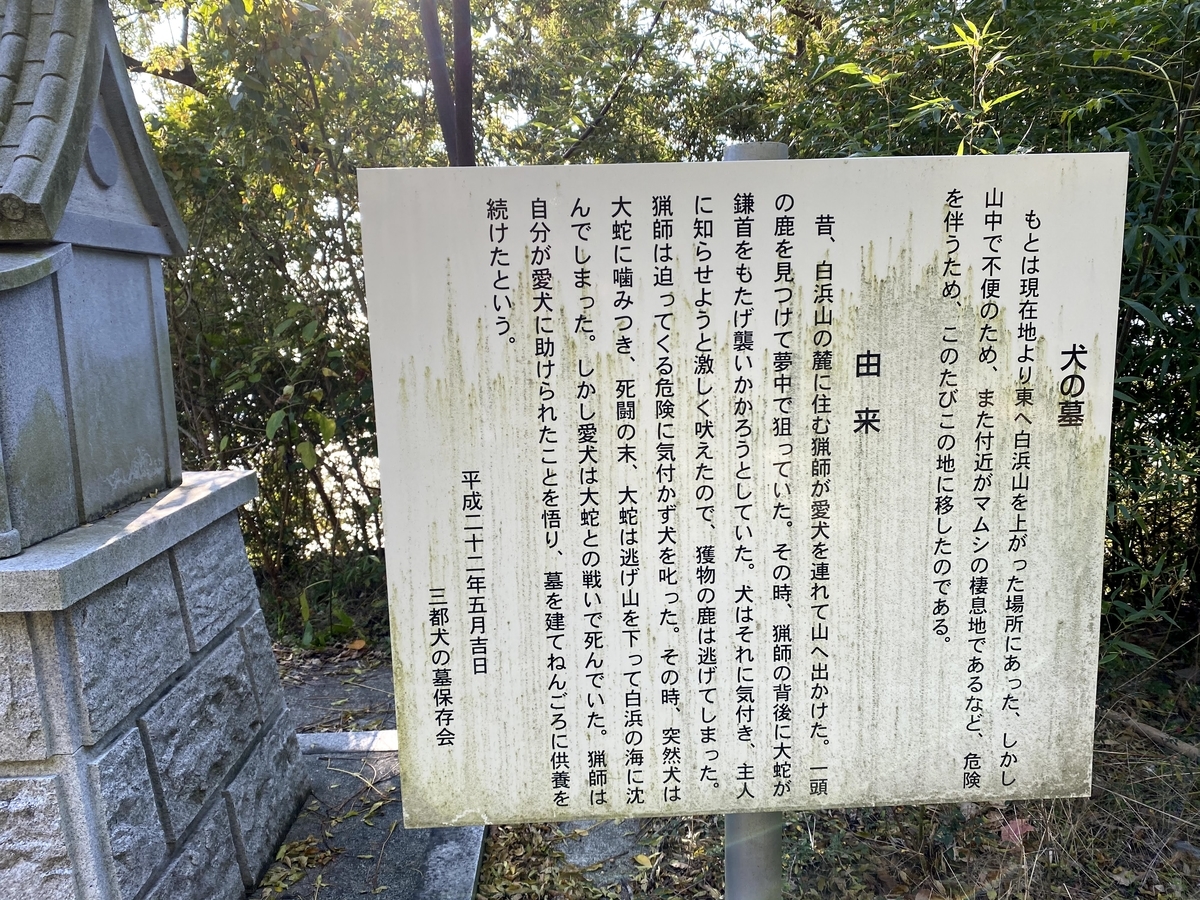 犬の墓
もとは現在地より東へ白浜山を上がった場所にあった、しかし
山中で不便のため、また付近がマムシの棲息地であるなど、危険
を伴うため、このたびこの地に移したのである。
由来
昔、白浜山の麓に住む猟師が愛犬を連れて山へ出かけた。一頭
の鹿を見つけて夢中で狙っていた。その時、猟師の背後に大蛇が
鎌首をもたげ襲いかかろうとしていた。犬はそれに気付き、主人
に知らせようと激しく吠えたので、獲物の鹿は逃げてしまった。
猟師は迫ってくる危険に気付かず犬を叱った。その時、突然犬は
大蛇に噛みつき、死闘の末、大蛇は逃げ山を下って白浜の海に沈
んでしまった。しかし愛犬は大蛇との戦いで死んでいた。猟師は
自分が愛犬に助けられたことを悟り、墓を建てねんごろに供養を
続けたという。
平成二十二年五月吉日
三都犬の墓保存会